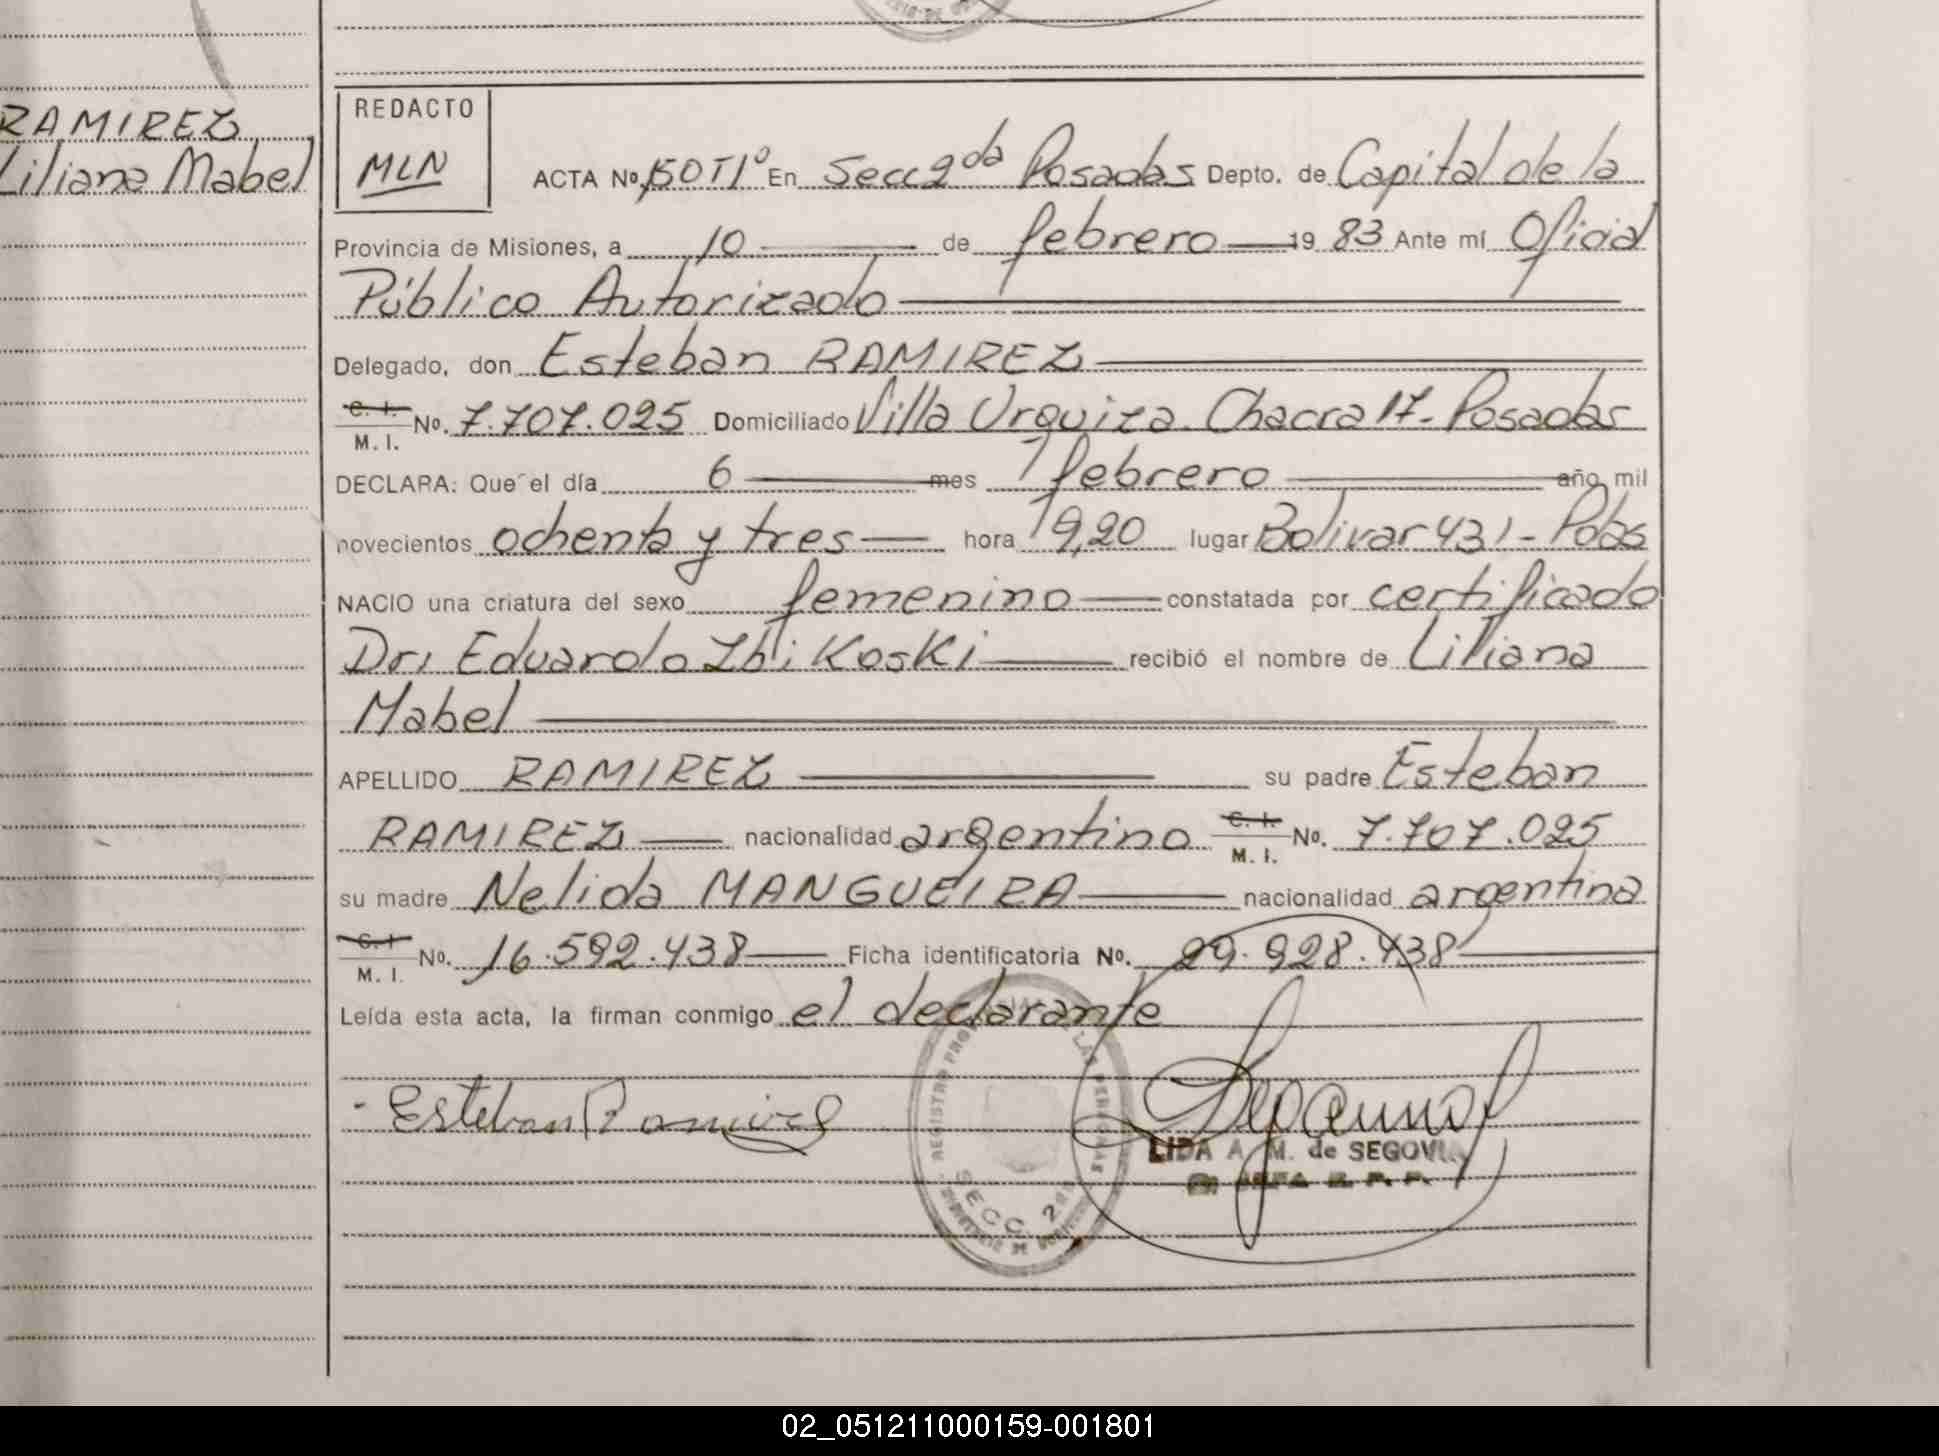 RAMIREZ
Liliana Mabel
REDACTO
MLN
ACTA Nº 150 T1º En Secc 2da Posadas Depto. de Capital de la
Provincia de Misiones, a 10 de febrero 19 83 Ante mí Oficial
Público Autorizado
Delegado, don Esteban RAMIREZ
C. I.
M. I. Nº. 7.707.025 Domiciliado Villa Urquiza. Chacra 17- Posadas
DECLARA: Que el día 6 mes febrero año mil
novecientos ochenta y tres hora 19,20 lugar Bolivar 431- Pdas
NACIO una criatura del sexo femenino constatada por certificado
Dr. Eduardo Zbikoski recibió el nombre de Liliana
Mabel
APELLIDO RAMIREZ su padre Esteban
RAMIREZ nacionalidad argentino C. I. M. I. Nº. 7.707.025
su madre Nelida MANGUEIRA nacionalidad argentina
C. I.
M. I. Nº. 16.592.438 Ficha identificatoria Nº. 29.928.438
Leída esta acta, la firman conmigo el declarante
Esteban Ramirez
REGISTRO LAS PERSONAS
SECC. 2da
LIDA A. M. de SEGOVIA
02_051211000159-001801